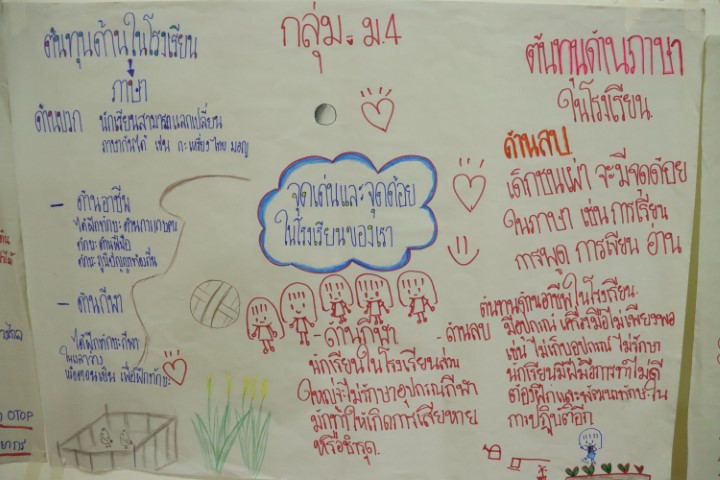 กลุ่ม ม.4
ต้นทุนด้านในโรงเรียน
ภาษา
ด้านบวก นักเรียนสามารถแลกเปลี่ยน
ภาษากันได้ เช่น กะเหรี่ยง ไทย มอญ
- ด้านอาชีพ
ได้ฝึกทักษะด้านการเกษตร
ทักษะด้านฝีมือ
ทักษะภูมิปัญญาท้องถิ่น
- ด้านกีฬา
ได้ฝึกทักษะกีฬา
ในเวลาว่าง
เพื่อฝึกทักษะ
จุดเด่นและจุดด้อย
ในโรงเรียนของเรา
- ด้านกีฬา - ด้านลบ
นักเรียนในโรงเรียนส่วน
ใหญ่จะไม่รักษาอุปกรณ์กีฬา
มักทำให้เกิดการเสียหาย
หรือชำรุด.
ต้นทุนด้านภาษา
ในโรงเรียน.
ด้านลบ
เด็กชนเผ่า จะมีจุดด้อย
ในภาษา เช่น การเรียน
การพูด การเขียน อ่าน
ต้นทุนด้านอาชีพในโรงเรียน.
มีอุปกรณ์ เครื่องมือไม่เพียงพอ
เช่น ไม่เก็บอุปกรณ์ ไม่รักษา
นักเรียนมีฝีมือการทำไม่ดี
ต้องฝึกและพัฒนาทักษะใน
การปฏิบัติอีก
OTOP